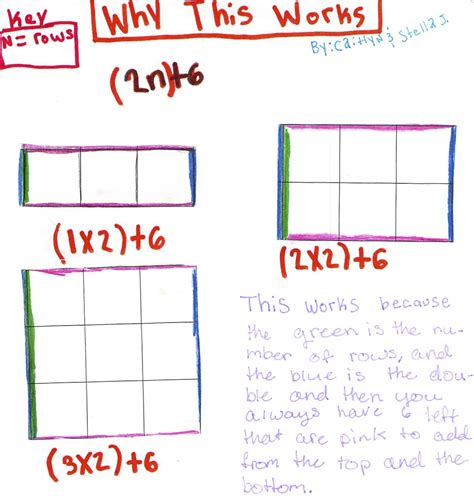 Key
N = rows
Why This Works
By: Caitlyn & Stella J.
(2n)+6
(1x2)+6
(2x2)+6
(3x2)+6
This works because
the green is the nu-
mber of rows, and
the blue is the dou-
ble and then you
always have 6 left
that are pink to add
from the top and the
bottom.